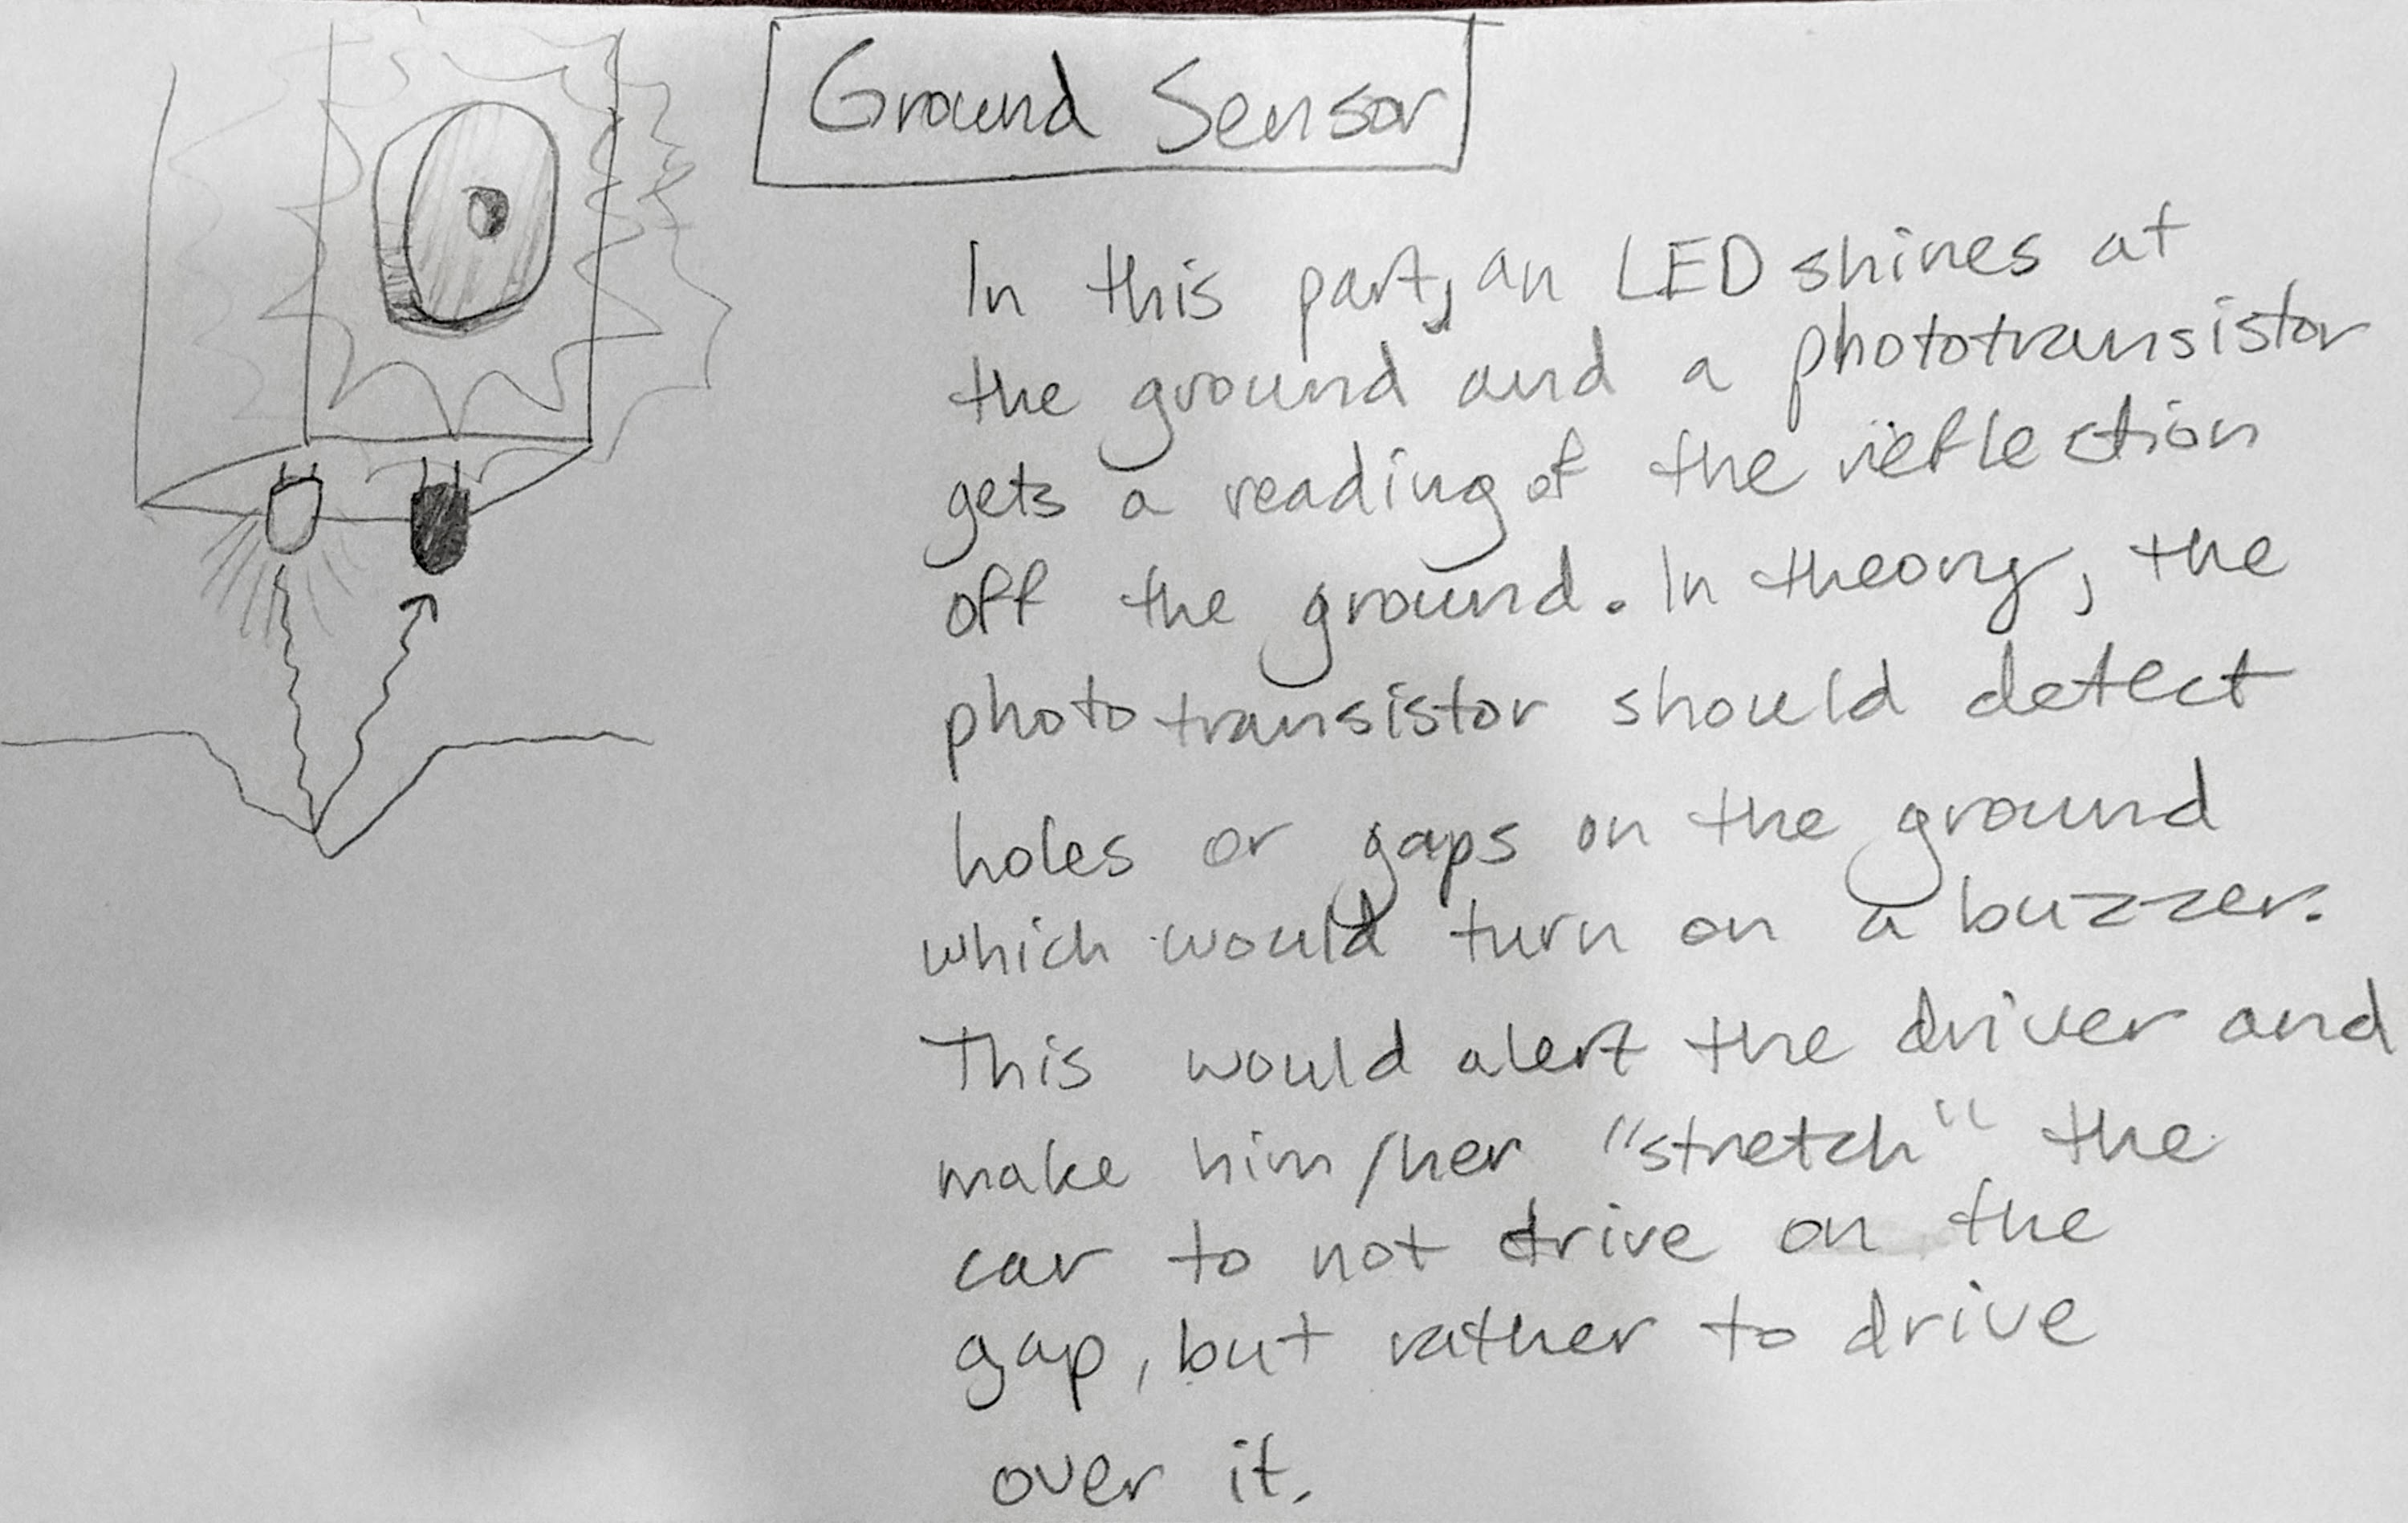 Ground Sensor
In this part, an LED shines at
the ground and a phototransistor
gets a reading of the reflection
off the ground. In theory, the
phototransistor should detect
holes or gaps on the ground
which would turn on a buzzer.
This would alert the driver and
make him/her "stretch" the
car to not drive on the
gap, but rather to drive
over it.